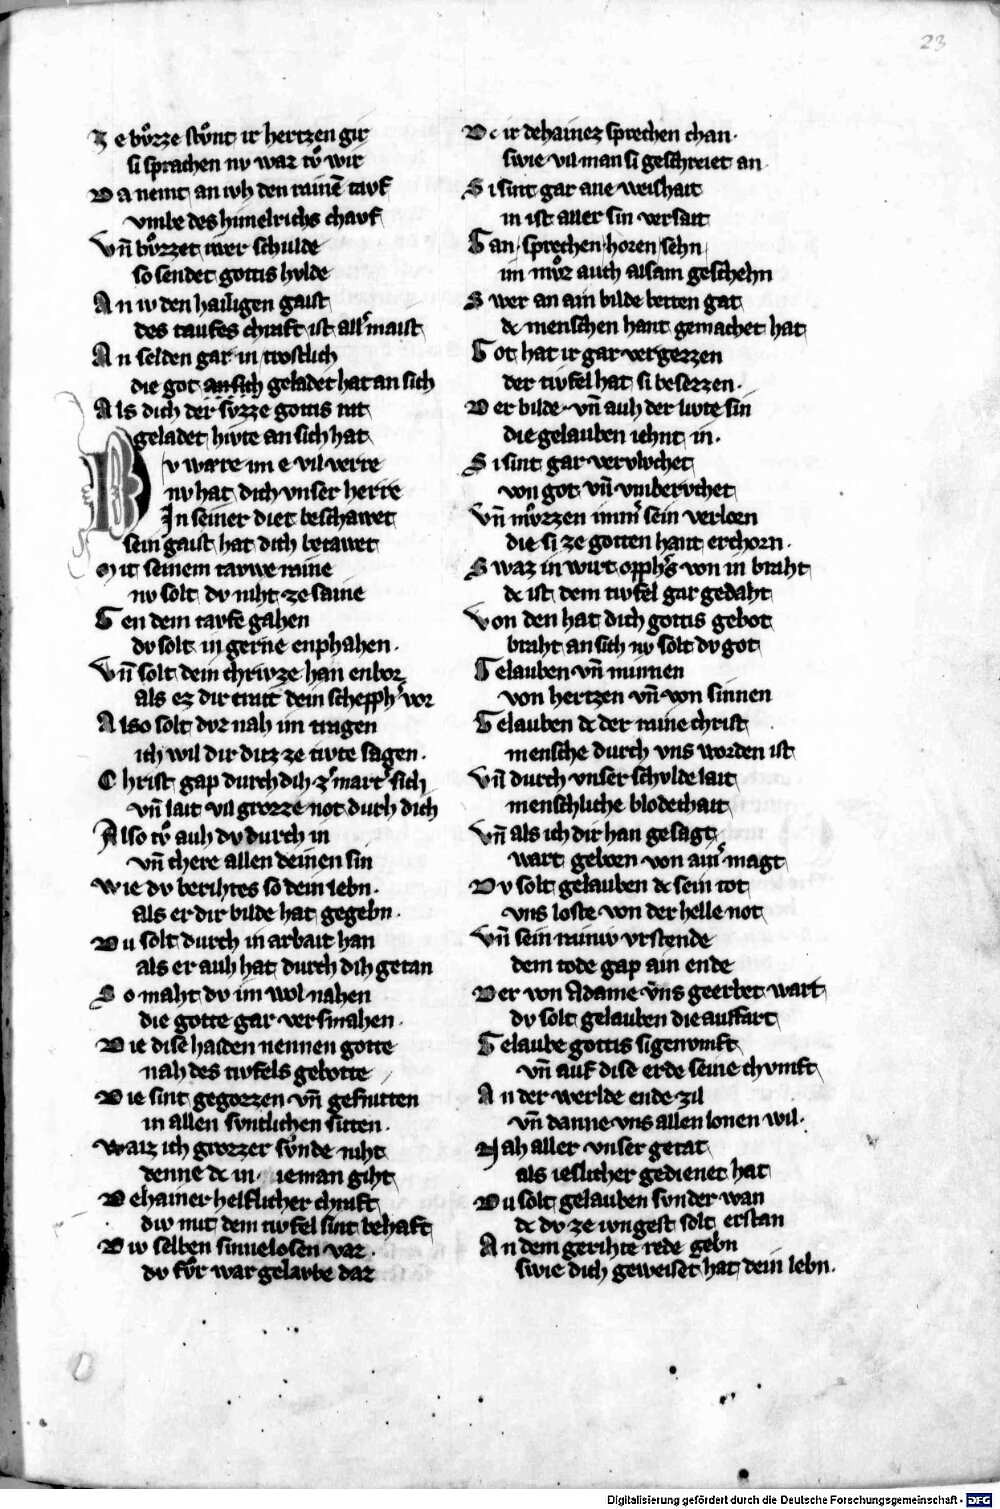 23
Ze bůzze stůnt ir hertzen gir
si sprachen nv waz tů wir
Da nemt an iwh den rainē tauf
vmbe des himelrichs chauf
Vn̄ bůzzet iwer schulde
so sendet gottis hvlde
An iv den hailigen gaist
des taufes chraft ist all͛ maist
An selden gar in trostlich
die got an sich geladet hat an sich
Als dich der svzze gottis rat
geladet hivte an sich hat
Dv wære im e vil verre
nv hat dich vnser herre
In seiner diet beschawet
sein gaist hat dich betawet
Mit seinem tavwe raine
nv solt dv niht ze saine
Gen dem taufe gahen
dv solt in gerne enphahen.
Vn̄ solt dein chrivze han enbor
als ez dir trait dein scheppf͛ vor
Also solt dvz nah im tragen
ich wil dir ditz ze tivte sagen.
Christ gap durch dih z͛ mart͛ sich
vn̄ lait vil grozze not durch dich
Also tů auh dv durch in
vn̄ chere allen deinen sin
Wie dv berihtes so dein lebn.
als er dir bilde hat gegebn.
Du solt durch in arbait han
als er auh hat durch dih getan
So maht dv im wol nahen
die gotte gar versmahen.
Die dise haiden nennen gotte
nah des tivfels gebotte
Die sint gegozzen vn̄ gesnitten
in allen svntlichen sitten.
Waiz ich grozzer sv̊nde niht
denne dc in ieman giht
Dehainer helflicher chraft
div mit dem tivfel sint behaft
Div selben sinnelosen vaz.
dv fv̊r war gelaube daz
Dc ir dehainez sprechen chan.
swie vil man si geschreiet an
Si sint gar ane weishait
in ist aller sin versait
Gan sprechen horen sehn
im mvͦz auch alsam geschehn
Swer an ain bilde betten gat
dc menschen hant gemachet hat
Got hat ir gar vergezzen
der tivfel hat si besezzen.
Der bilde vn̄ auh der livte sin
die gelauben iehnt in.
Si sint gar vervlvchet
von got vn̄ vmbervchet
Vn̄ mvͦzzen imm͛ sein verlorn
die si ze gotten hant erchorn.
Swaz in wirt opph͛s von in braht
dc ist dem tivfel gar gedaht
Von den hat dich gottis gebot
braht an sich nv solt dv got
Gelauben vn̄ minnen
von hertzen vn̄ von sinnen
Gelauben dc der raine christ
mensche durch vns worden ist
Vn̄ durch vnser schvlde lait
menschliche blodechait
Vn̄ als ich dir han gesagt
wart geborn von ain͛ magt
Dv solt gelauben dc sein tot
vns loste von der helle not
Vn̄ sein rainiv vrstende
dem tode gap ain ende
Der von Adame vns geerbet wart
dv solt gelauben die auffart
Gelaube gottis sigenvmft
vn̄ auf dise erde seine chvnft
An der werlde ende zil
vn̄ danne vns allen lonen wil.
Nah aller vnser getat
als ieslicher gedienet hat
Du solt gelauben svnder wan
dc dv ze ivngest solt erstan
An dem gerihte rede gebn
swie dich geweiset hat dein lebn.
Digitalisierung gefördert durch die Deutsche Forschungsgemeinschaft - DFG